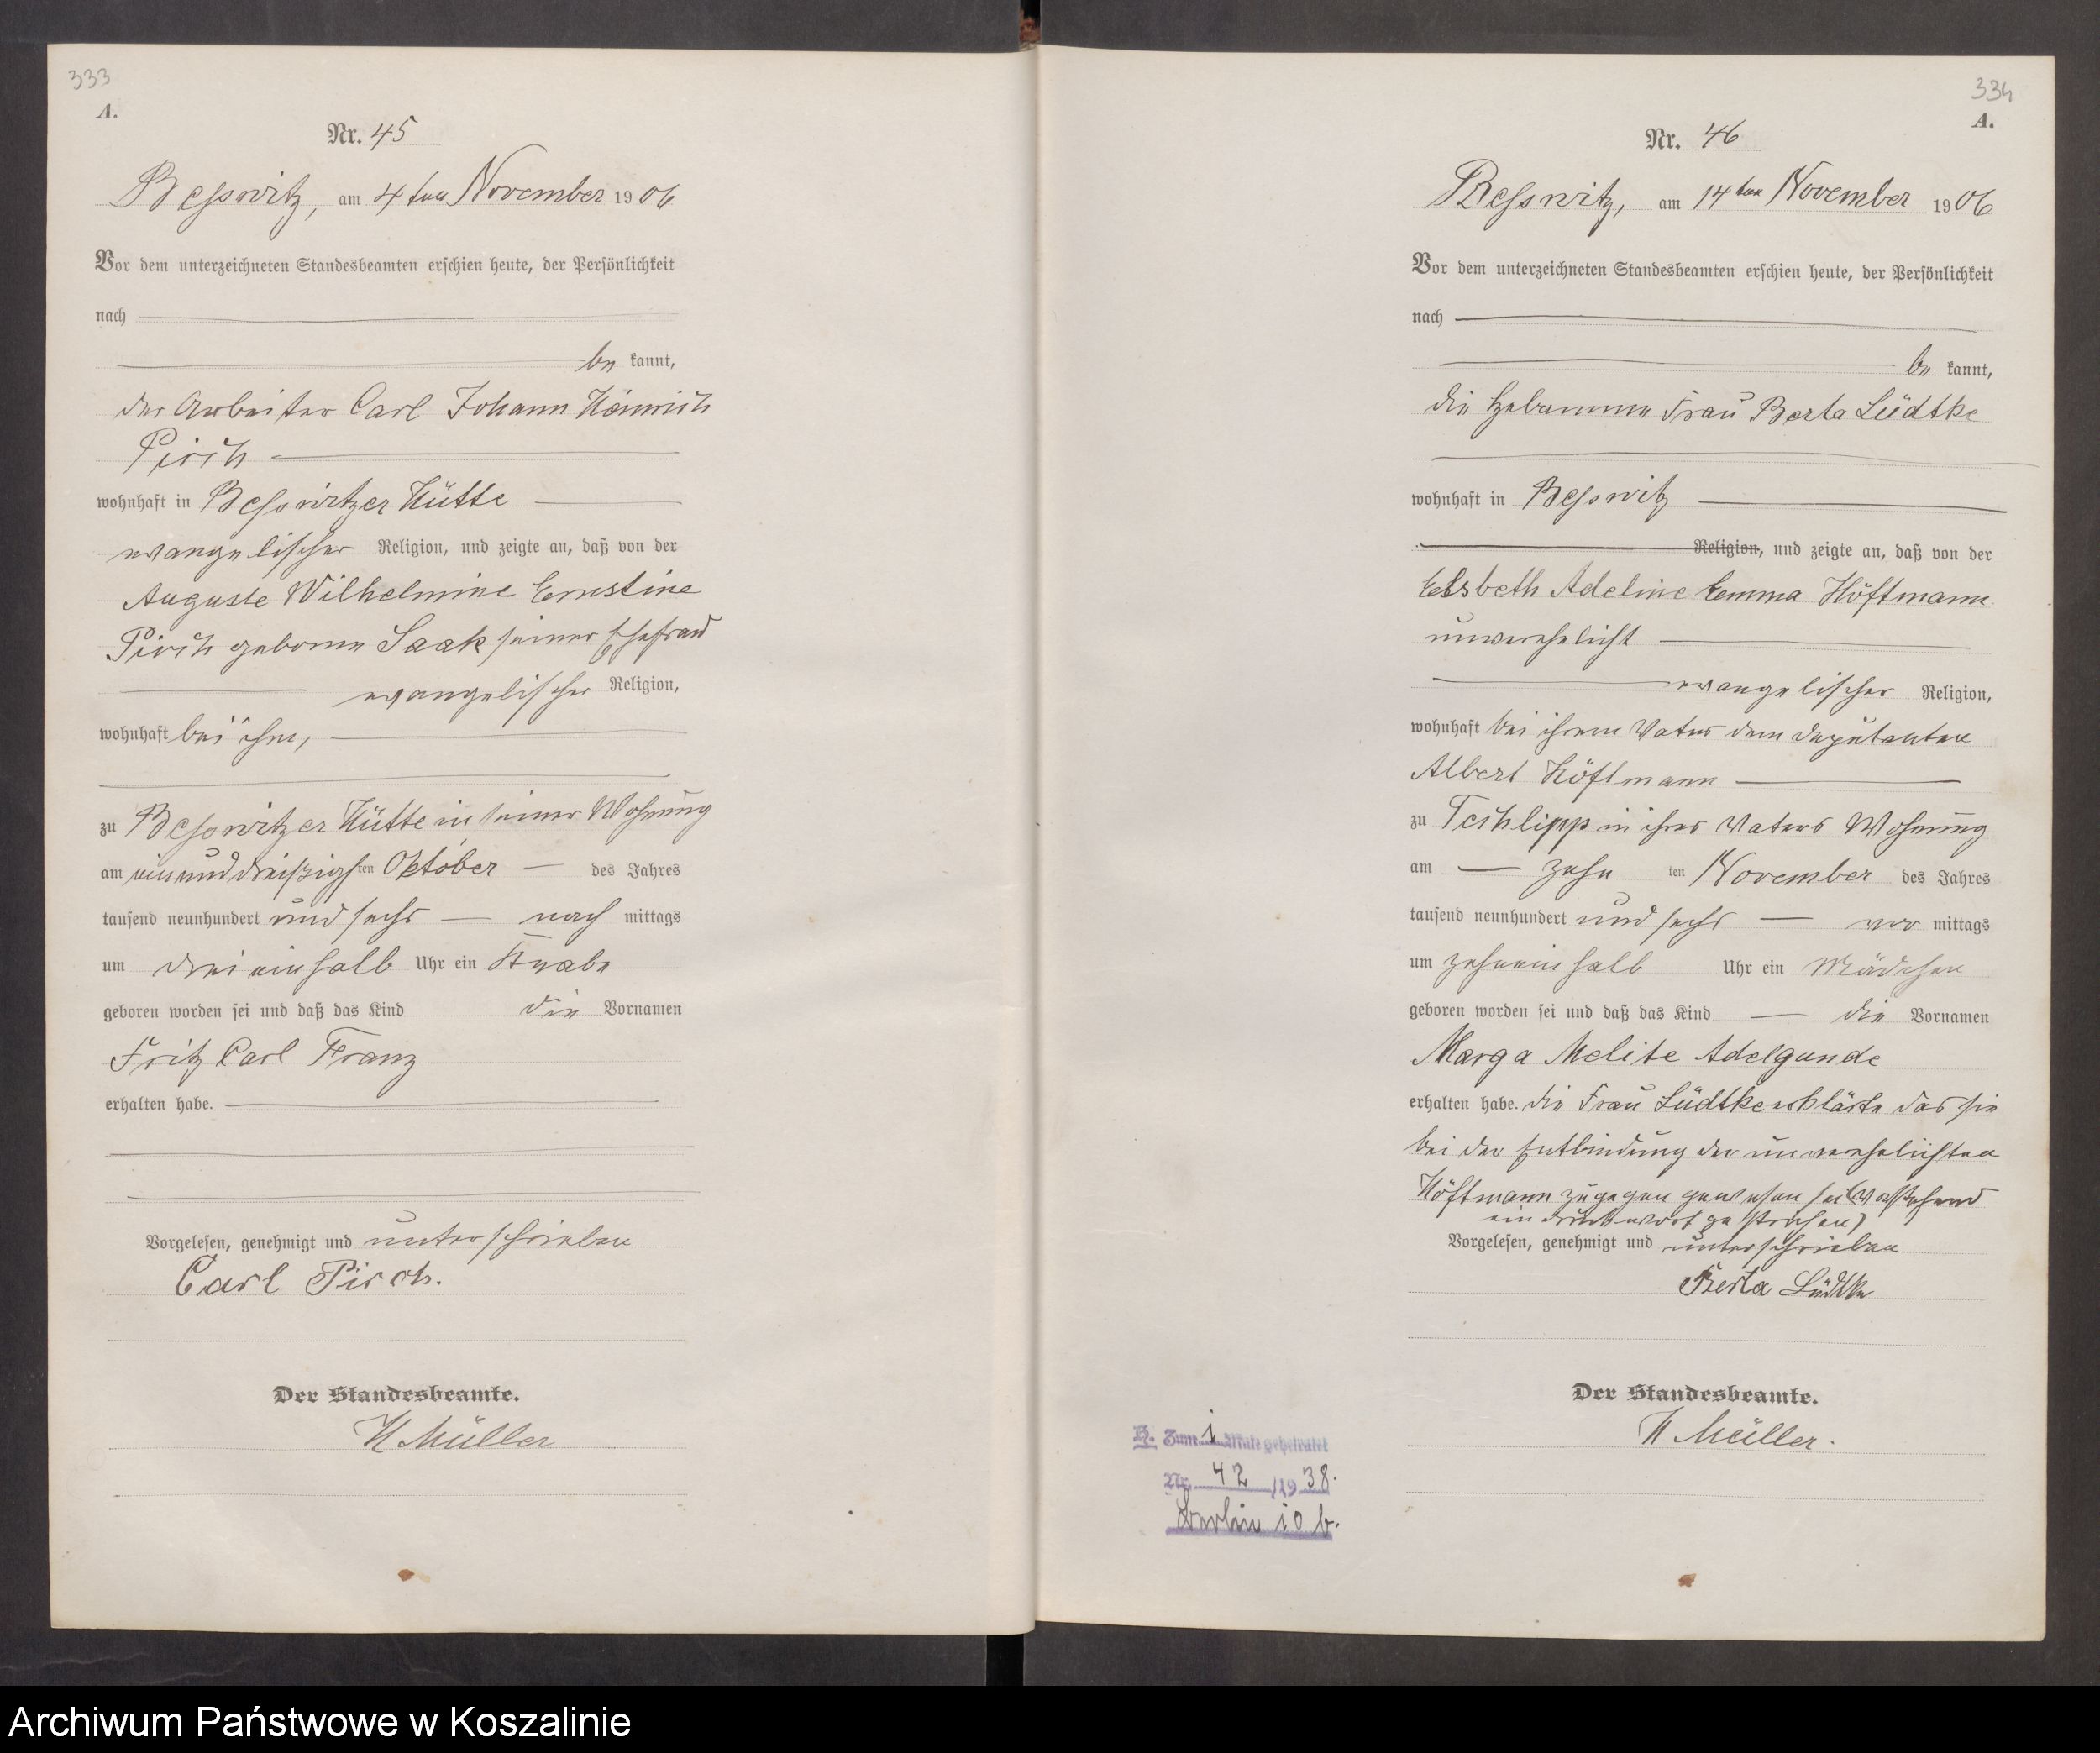 333
A.
Nr. 45
Besswitz, am 4ten November 1906
Vor dem unterzeichneten Standesbeamten erschien heute, der Persönlichkeit
nach
be kannt,
der Arbeiter Carl Johann Heinrich
Pirch
wohnhaft in Besswitzer Hütte
evangelischer Religion, und zeigte an, daß von der
Auguste Wilhelmine Ernstine
Pirch geborne Saak seiner Ehefrau
evangelischer Religion,
wohnhaft bei ihm,
zu Besswitzer Hütte in seiner Wohnung
am einunddreißigsten Oktober des Jahres
tausend neunhundert und sechs nach mittags
um drei ein halb Uhr ein Knabe
geboren worden sei und daß das Kind die Vornamen
Fritz Carl Franz
erhalten habe.
Vorgelesen, genehmigt und unterschrieben
Carl Pirch.
Der Standesbeamte.
H Müller
334
A.
Nr. 46
Besswitz, am 14ten November 1906
Vor dem unterzeichneten Standesbeamten erschien heute, der Persönlichkeit
nach
be kannt,
die Hebamme Frau Berta Lüdtke
wohnhaft in Besswitz
Religion, und zeigte an, daß von der
Elsbeth Adeline Emma Höftmann
unverehelicht
evangelischer Religion,
wohnhaft bei ihrem Vater dem Deputanten
Albert Höftmann
zu Techlipp in ihres Vaters Wohnung
am zehn ten November des Jahres
tausend neunhundert und sechs vor mittags
um zehn ein halb Uhr ein Mädchen
geboren worden sei und daß das Kind die Vornamen
Marga Melite Adelgunde
erhalten habe. die Frau Lüdtke erklärte das sie
bei der Entbindung der unverehelichten
Höftmann zugegen gewesen sei (Vorstehend
ein Druckwort gestrichen)
Vorgelesen, genehmigt und unterschrieben
Berta Lüdtke
Der Standesbeamte.
H Müller.
B. Zum 1 Male geheiratet
Nr. 42 /1938.
Berlin 10 b.
Archiwum Państwowe w Koszalinie